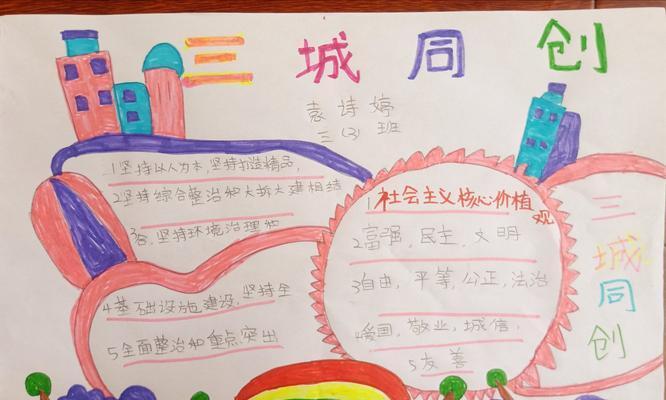 三城同创
袁诗婷
三(3)班
1坚持以人为本,坚持打造精品,
2坚持综合整治和大拆大建相结
3合,坚持环境治理和
4基础设施建设,坚持全
5全面整治和重点突出
1社会主义核心价值
观
2富强,民主,文明
3自由,平等,公正,法治
4爱国,敬业,城信,
5友善
三
城
同
创